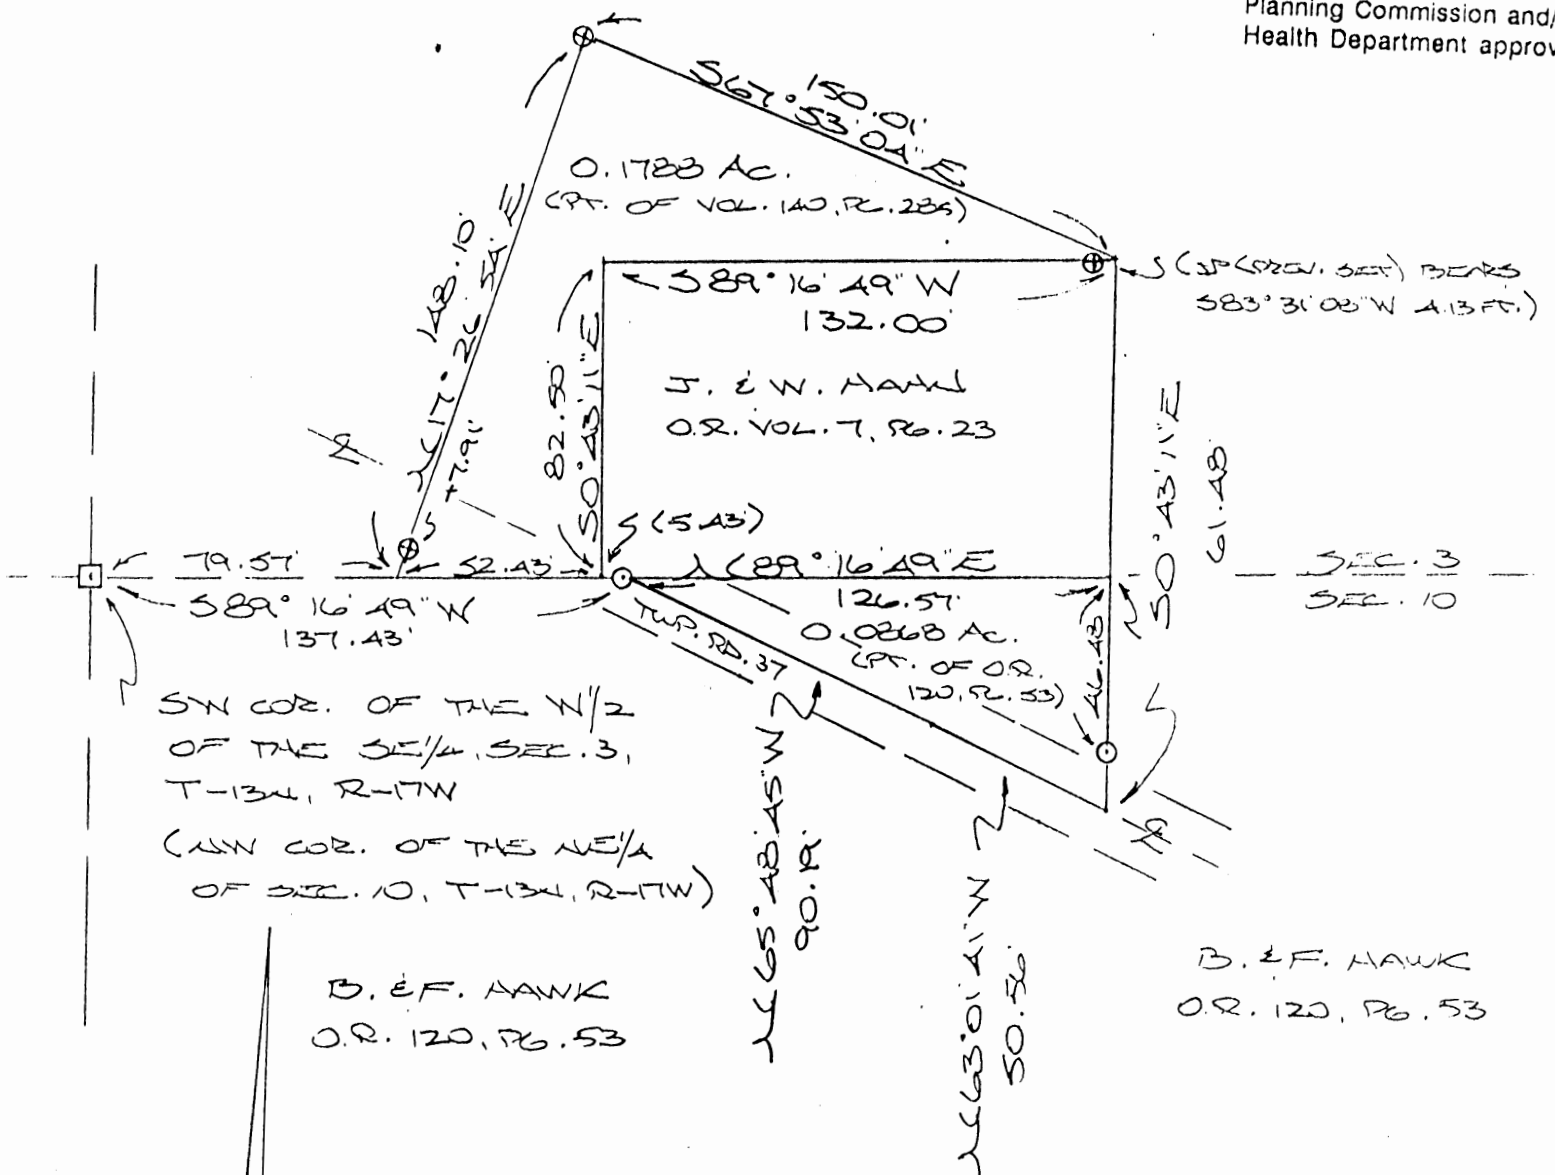 Planning Commission and/
Health Department approv
S67°53'04"E
150.01'
0.1788 Ac.
(PT. OF VOL. 140, PG.
N17°26'54"E
148.10'
+7.91'
S89°16'49"W
132.00'
(IP (PREV. SET) BEARS
S83°31'08"W 4.13 FT.)
82.50'
S0°43'11"E
J. & W. HAHN
O.R. VOL. 7, PG. 23
S0°43'11"E
61.48'
(5.43')
79.57'
52.43'
N89°16'49"E
126.57'
SEC. 3
SEC. 10
S89°16'49"W
137.43'
TWP. RD. 37
0.0868 Ac.
(PT. OF O.R.
120, PG. 53)
46.48'
SW COR. OF THE W1/2
OF THE SE1/4, SEC. 3,
T-13N, R-17W
(NW COR. OF THE NE1/4
OF SEC. 10, T-13N, R-17W)
N65°48'45"W
90.19'
N63°01'41"W
50.56'
B. & F. HAWK
O.R. 120, PG. 53
B. & F. HAWK
O.R. 120, PG. 53